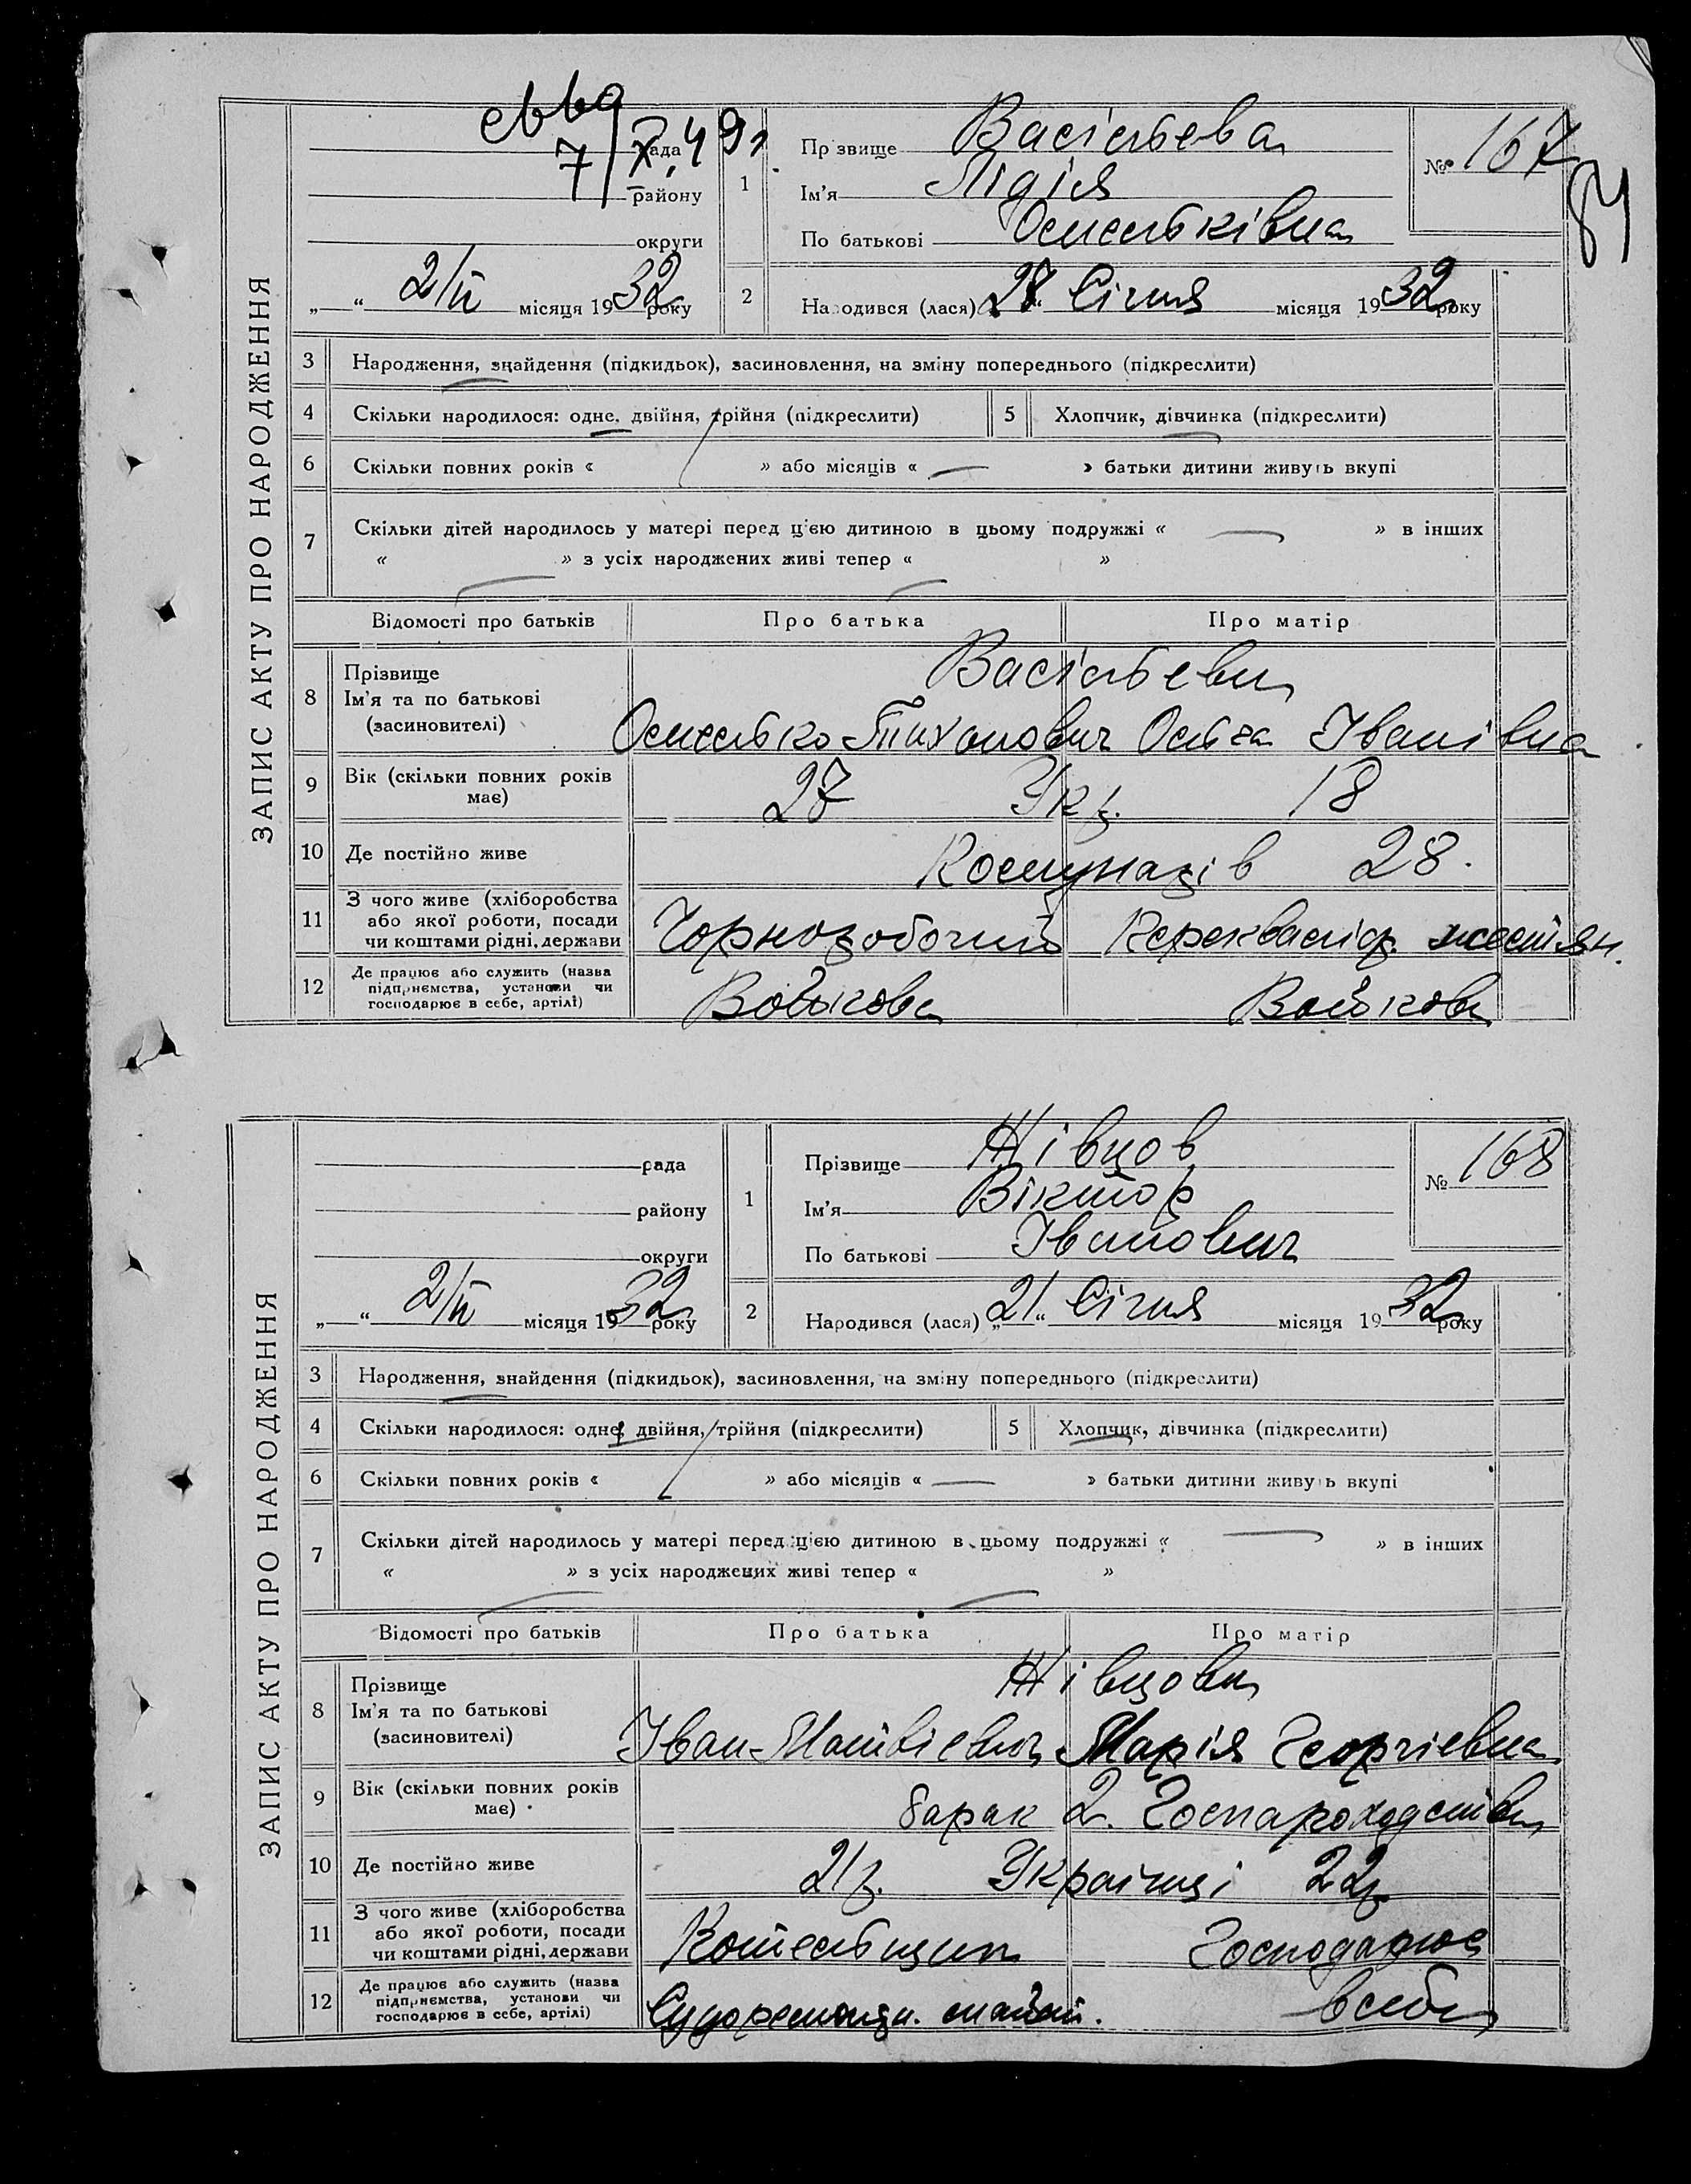 7/X.49
84
ЗАПИС АКТУ ПРО НАРОДЖЕННЯ
рада
району
округи
„ “ 2/II місяця 1932 року
1
Прізвище Васільєва
Ім'я Лідія
По батькові Омельківна
№ 167
2
Народився (лася) „28“ Січня місяця 1932 року
3 Народження, знайдення (підкидьок), засиновлення, на зміну попереднього (підкреслити)
4 Скільки народилося: одне, двійня, трійня (підкреслити)
5 Хлопчик, дівчинка (підкреслити)
6 Скільки повних років « » або місяців « — » батьки дитини живуть вкупі
7 Скільки дітей народилось у матері перед цією дитиною в цьому подружжі « — » в інших
« — » з усіх народжених живі тепер « — »
Відомості про батьків Про батька Про матір
8 Прізвище
Ім'я та по батькові
(засиновителі)
Васільєви
Омелько Тихонович Ольга Іванівна
9 Вік (скільки повних років
має)
27 Укр. 18
10 Де постійно живе
Комунарів 28.
11 З чого живе (хліборобства
або якої роботи, посади
чи коштами рідні, держави
Чорноробочий жестян.
12 Де працює або служить (назва
підприємства, установи чи
господарює в себе, артілі)
Войкова Войкова
ЗАПИС АКТУ ПРО НАРОДЖЕННЯ
рада
району
округи
„ “ 2/II місяця 1932 року
1
Прізвище Жівцов
Ім'я Віктор
По батькові Іванович
№ 168
2
Народився (лася) „21“ Січня місяця 1932 року
3 Народження, знайдення (підкидьок), засиновлення, на зміну попереднього (підкреслити)
4 Скільки народилося: одне, двійня, трійня (підкреслити)
5 Хлопчик, дівчинка (підкреслити)
6 Скільки повних років « » або місяців « — » батьки дитини живуть вкупі
7 Скільки дітей народилось у матері перед цією дитиною в цьому подружжі « — » в інших
« — » з усіх народжених живі тепер « — »
Відомості про батьків Про батька Про матір
8 Прізвище
Ім'я та по батькові
(засиновителі)
Жівцови
Іван Матвієвич Марія Георгієвна
9 Вік (скільки повних років
має)
барак 2. Госпароходства
10 Де постійно живе
21р. Українці 22р.
11 З чого живе (хліборобства
або якої роботи, посади
чи коштами рідні, держави
Котельщик Господарює
12 Де працює або служить (назва
підприємства, установи чи
господарює в себе, артілі)
Судоремонтн. майст. в себе